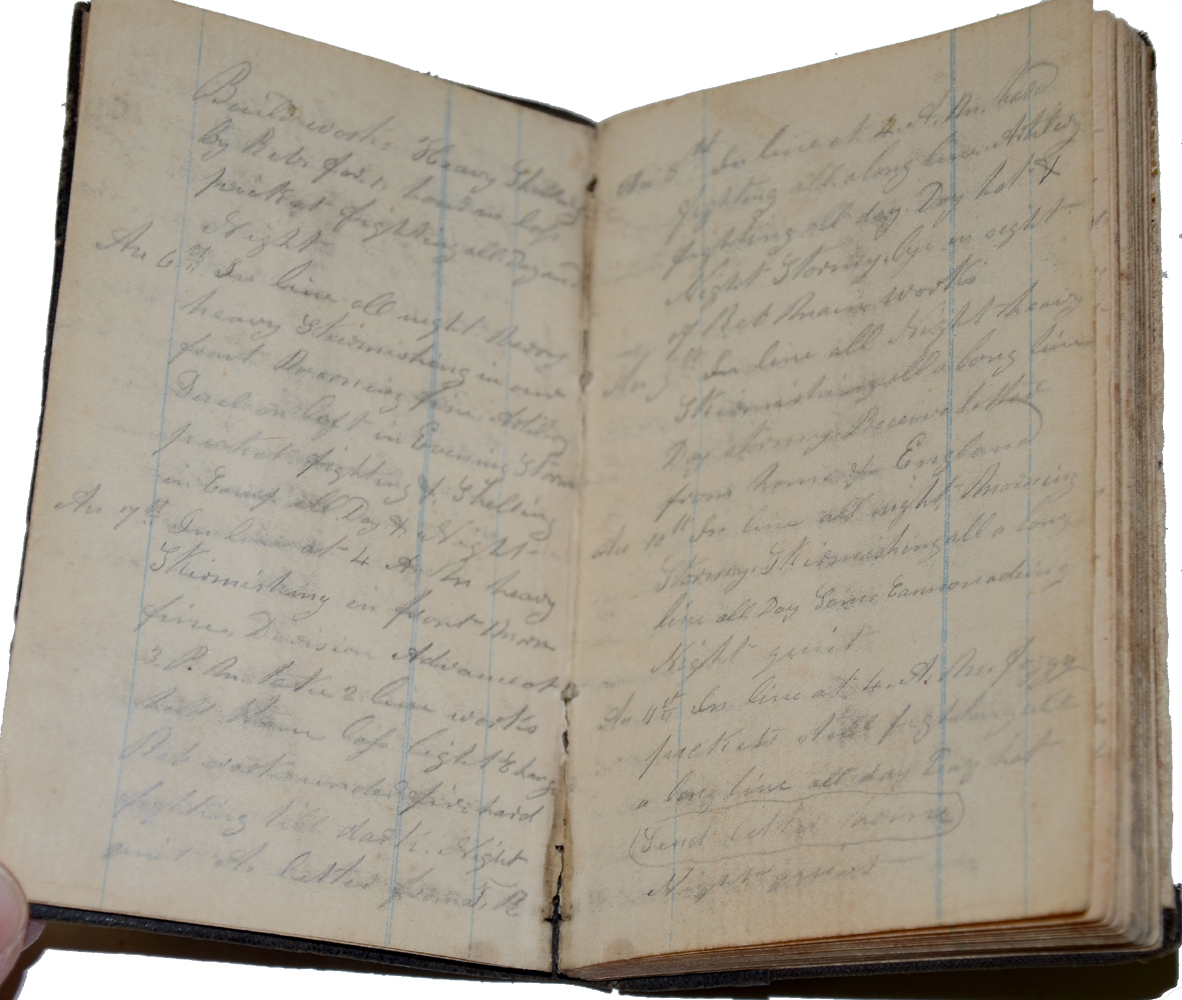 Build works Heavy Shelling
by Rebs for 1 hour no loss
picket fighting all Day and
Night
Au 6th In line all night Heavy
heavy Skirmishing in our
front Morning fine. Artilery
Duel on Left in Evening Storm
picket fighting & Shelling
in Camp all Day & Night
Au 7th In line at 4 A.M heavy
Skirmishing in front Morn
fine. Division Advance at
3. P. M. take 2 line works
hold them loss light Charge
Reb works under fire hard
fighting till dark. Night
quiet letter from T, R
Au 8th In line at 4. A. M. hard
fighting all along line Artilery
fighting all day. Day hot &
Night Stormy. lye in sight
of Reb Main Works
Au 9th In line all Night heavy
Skirmishing all a long line
Day stormy. Receive letter
from home & England
Au 10th In line all night Morning
Stormy. Skirmishing all a long
line all Day Some Cannonadeing
Night quiet
Au 11th In line at 4. A. M. foggy
pickets still fighting all
a long line all day Day hot
Send letter home
Night quiet